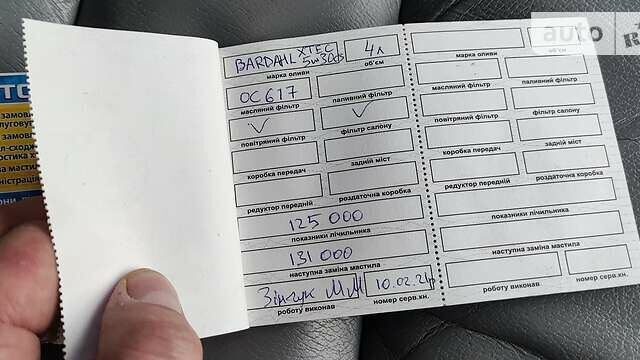 BARDAHL XTEC 5w30ф 4л
марка оливи об'єм
OC 617
масляний фільтр паливний фільтр
повітряний фільтр фільтр салону
коробка передач задній міст
редуктор передній роздаточна коробка
125 000
показники лічильника
131 000
наступна заміна мастила
10.02.24
роботу виконав номер серв.кн.
марка оливи об'єм
масляний фільтр паливний фільтр
повітряний фільтр фільтр салону
коробка передач задній міст
редуктор передній роздаточна коробка
показники лічильника
наступна заміна мастила
роботу виконав номер серв.кн.
auto